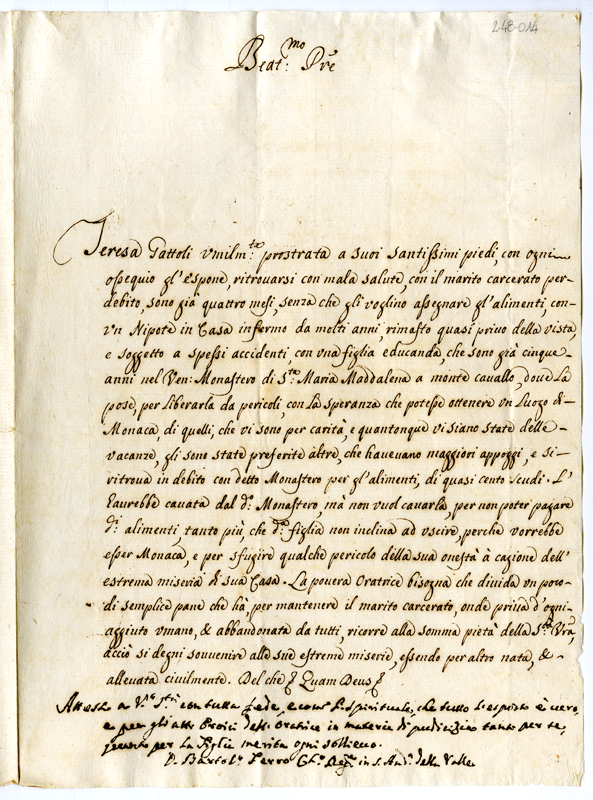 2-48-014
Beat:mo Pre
Teresa Gattoli vmilm:te prostrata a suoi santissimi piedi, con ogni
ossequio gl'espone, ritrouarsi con mala salute, con il marito carcerato per
debito, sono già quattro mesi, senza che gli voglino assegnare gl'alimenti, con
vn Nipote in Casa infermo da molti anni, rimasto quasi priuo della vista,
e soggetto a spessi accidenti, con vna figlia educanda, che sono già cinque
anni nel Ven: Monastero di S.ta Maria Maddalena a monte cauallo, doue La
pose, per Liberarla da pericoli, con La speranza che potesse ottenere vn Luogo di
Monaca, di quelli, che vi sono per carità, e quantonque vi siano state delle
vacanze, gli sono state preferite altre, che haueuano maggiori appoggi, e si
ritroua in debito con detto Monastero per gl'alimenti, di quasi cento scudi. L'
haurebbe cauata dal d:o Monastero, mà non vuol cauarla, per non poter pagare
d:i alimenti, tanto più, che d:a figlia non inclina ad vscire, perche vorrebbe
esser Monaca, e per sfugire qualche pericolo della sua onestà à cagione dell'
estrema miseria di sua Casa. La pouera Oratrice bisogna che diuida vn poco
di semplice pane che hà, per mantenere il marito carcerato, onde priua d'ogni
aggiuto vmano, & abbandonata da tutti, ricorre alla somma pietà della S.tà Vra,
acciò si degni souuenire alle sue estreme miserie, essendo per altro nata, &
alleuata ciuilmente. Del che & Quam Deus &
Attesto a V.ra S.tà con tutta fede, e come P. Spirituale, che tutto l'esposto è uero,
e per gli atti Eroici dell'Oratrice in materia di pudicizia tanto per se,
quanto per la figlia merita ogni sollieuo.
D. Bartol.o Ferro Ch:o Reg:e in S. And:a della Valle